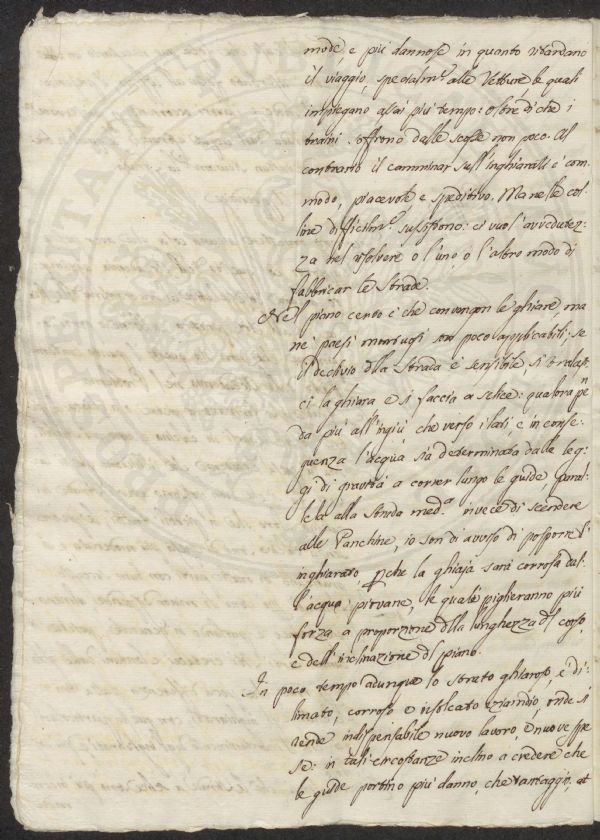 mode, e più dannose in quanto ritardano
il viaggio, specialm.e alle Vetture, le quali
impiegano assai più tempo: oltre di che i
traini soffrono dalle scosse non poco. Al
contrario il camminar sull'inghiarati è com-
modo, piacevole, e speditivo. Ma nelle col-
line difficilm.e sussistono: ci vuol l'avvedutez-
za nel risolvere o l'uno, o l'altro modo di
fabbricar le strade.
Nel piano certo è che convengon le ghiare, ma
ne' paesi montuosi son poco applicabili: se
il declivio dlla strada è sensibile si tralas-
ci la ghiara e si faccia a selce: qualora pen
da più all'ingiù che verso i lati, e in conse-
guenza l'acqua sia determinata dalle leg-
gi di gravità a correr lungo le guide, paral-
lela alla strada med.a invece di scendere
alle Panchine, io son di avviso di posporre l'
inghiarato, pche la ghiaja sarà corrosa dal-
l'acque piovane, le quali piglieranno più
forza a proporzione dlla lunghezza dl corso,
e dell'inclinazione dl piano.
In poco tempo adunque lo strato ghiaroso, è di-
limato, corroso e risolcato eziandio, onde si
rende indispensabile nuovo lavoro, e nuove spe
se: in tali circostanze inclino a credere che
le guide portino più danno, che vantaggio, at